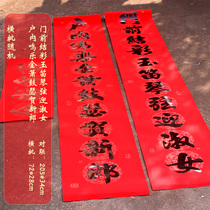 门前结彩玉笛琴弦迎淑女
户内鸣乐金箫鼓瑟贺新郎
对联:205*34cm
横批:172*28cm
横批随机
门前结彩玉笛琴弦迎淑女
户内鸣乐金箫鼓瑟贺新郎